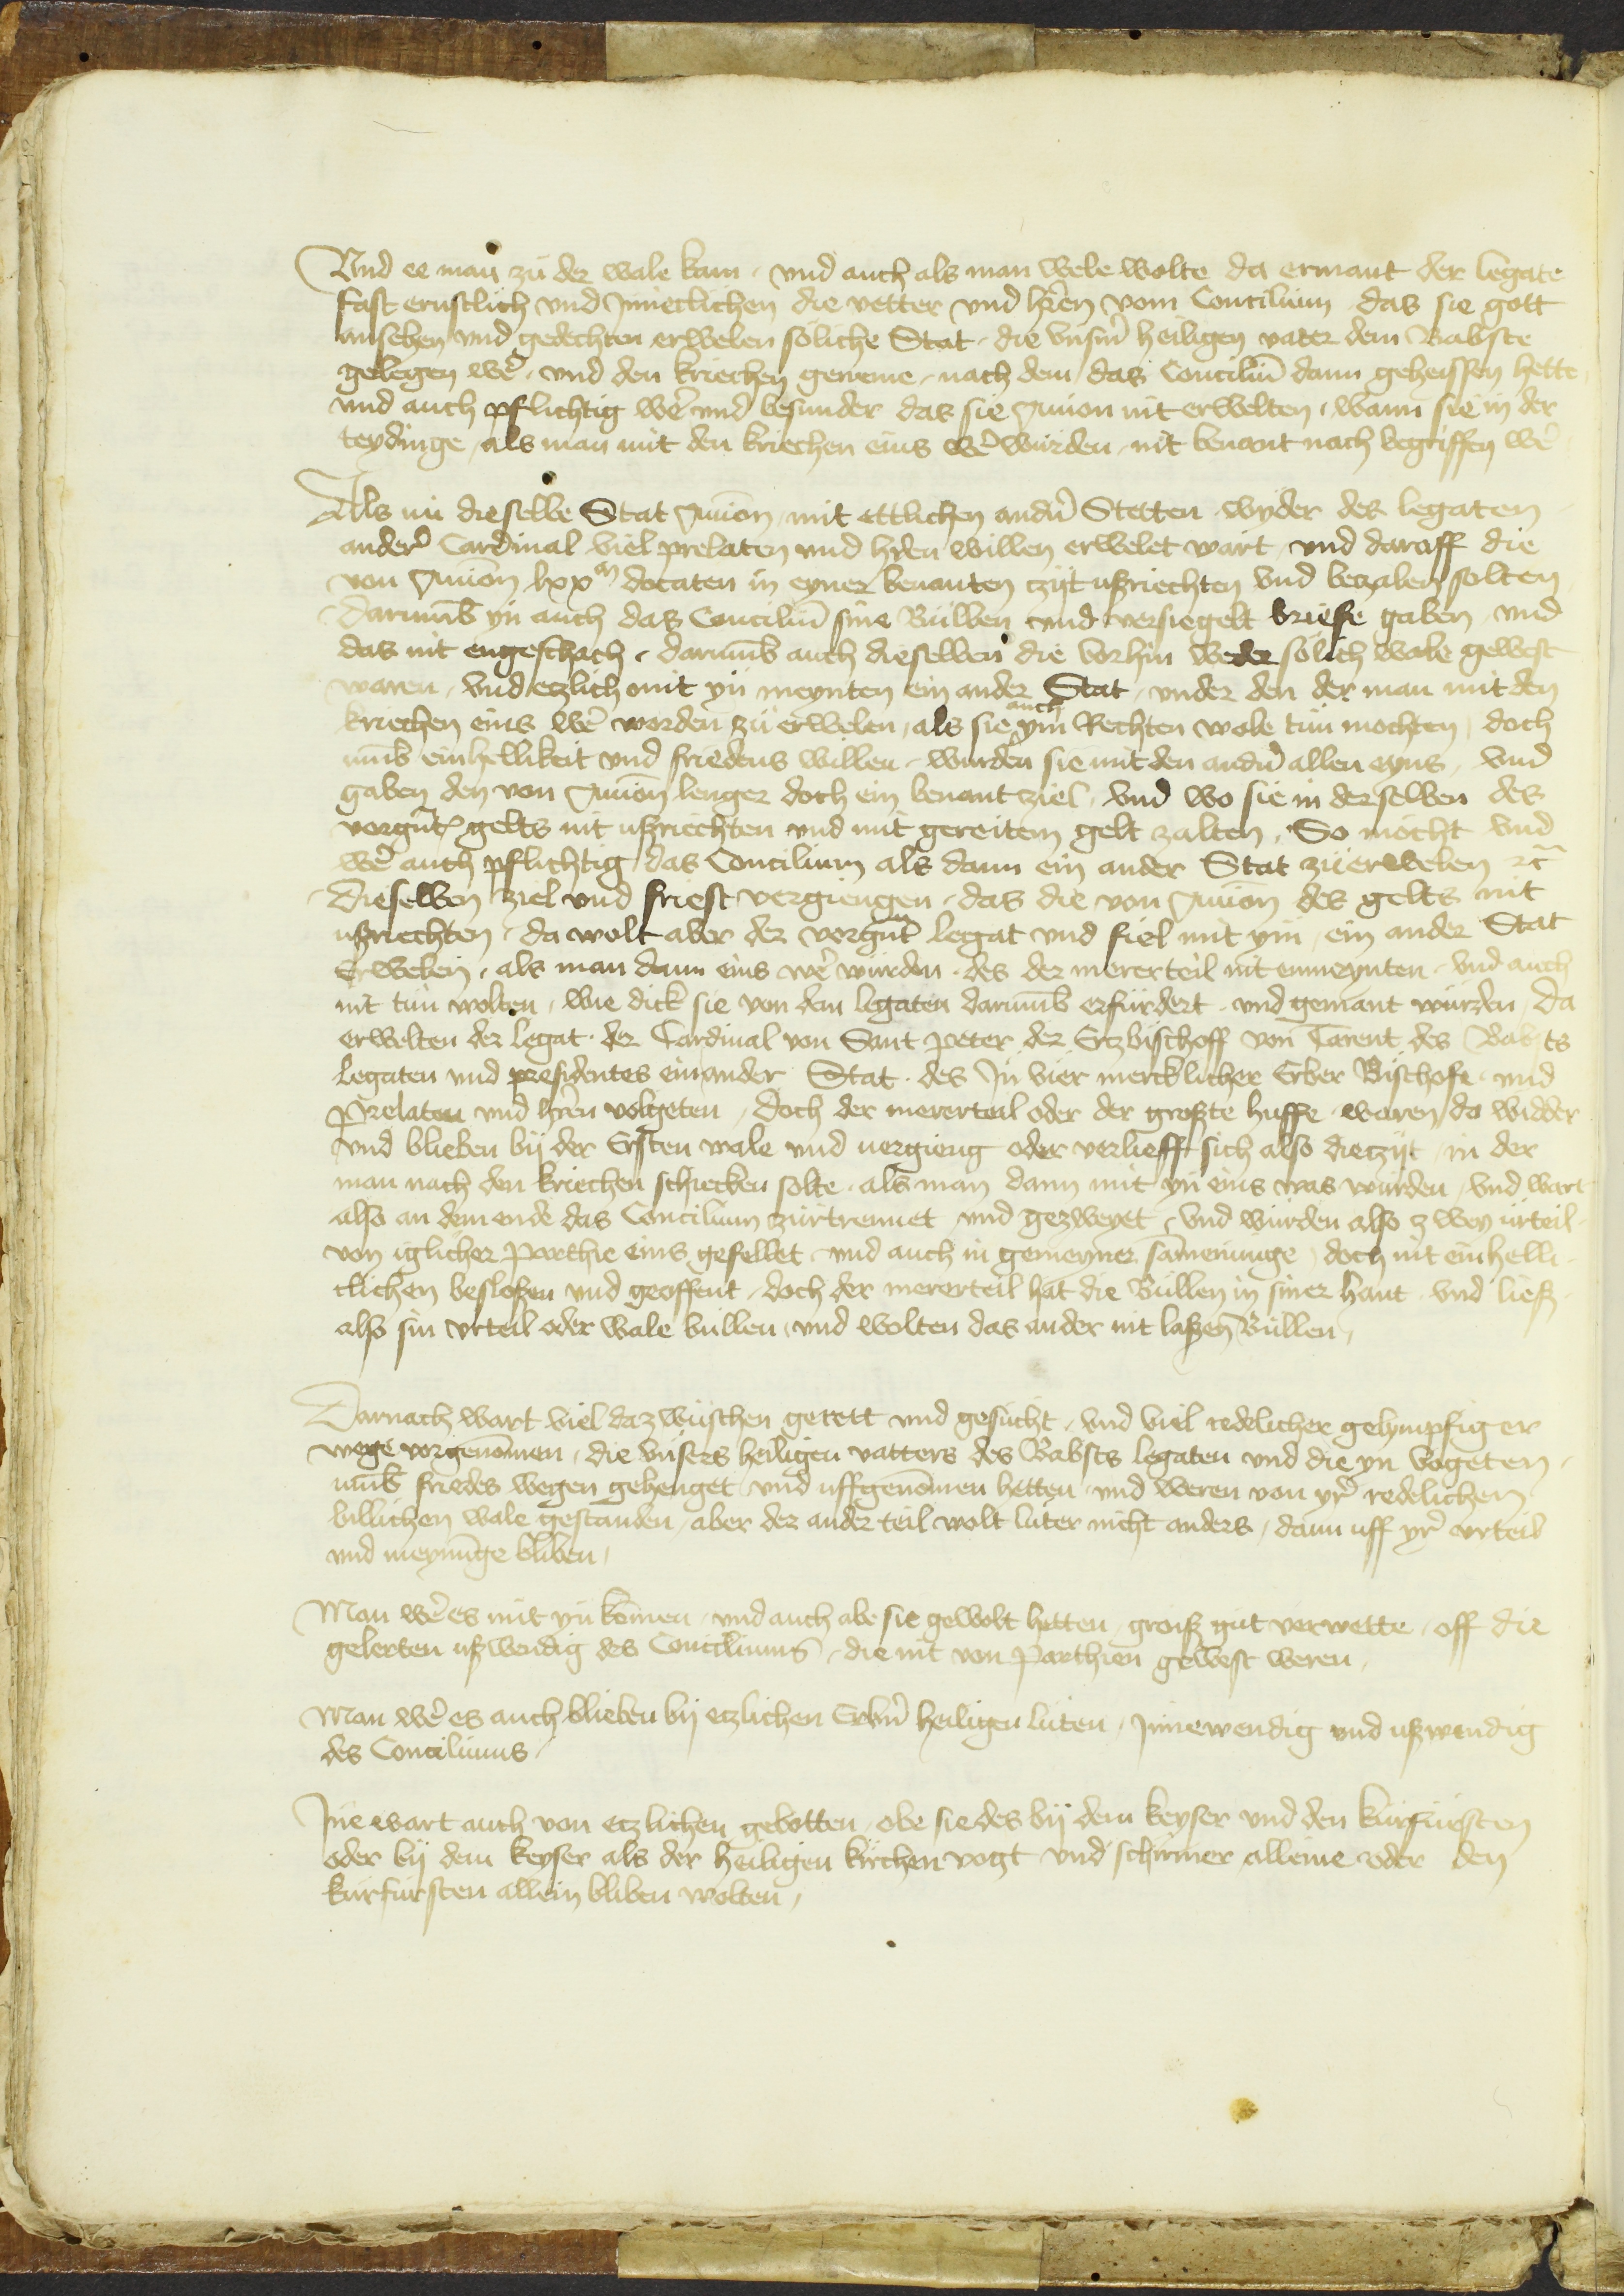 Und ee man zu der wale kam und auch als man wele wolte da ermant der legate
fast ernstlich und Innerlichen die vetter und hren vom Concilium das sie gott
ansehen und gedechten erwelen soliche Stat die unsm heiligen vater dem Babste
gelegen wer und den kriechen geneme nach dem das Conciliu dann geheissen hette
und auch pflichtig wer und besunder das sie Avion nit erwelten wann sie in der
teydinge als man mit den kriechen eins wer wurden nit benant noch begriffen wer
Als nu dieselbe Stat Avion mit ettlichen andn Stetten wyder des legaten
ander Cardinal viel prelaten und hren willen erwelet wart und daroff die
von Avion lxx m docaten in eyner benanten czijt ußriechten und beczalen solten
darumb yn auch das Conciliu sine Bullen und versiegelt briefe gaben und
das nit engeschach darumb auch dieselben die vorhin weder solich wale gewest
waren und etzlich mit yn meynten ein ander Stat under den der man mit den
kriechen eins wer worden zu erwelen als sie auch ym Rechten wole tun mochten doch
umb einhellikeit und friedens willen wurden sie mit den andn allen eyns und
gaben den von Avion lenger doch ein benant ziel und wo sie in derselben des
vorgnt gelts nit ußriechten und mit gereitem gelt zalten So mocht und
wer auch pflichtig das Concilium als dann ein ander Stat zu erwelen ec
dieselben ziel und friest vergiengen das die von Avion des gelts nit
ußriechten da wolt aber der vorgnt legat und fiel mit ym ein ander Stat
Erwelen als man dann eins wer wurden des der mererteil nit enmeynten und auch
nit tun wolten wie dick sie von dem legaten darumb erfurdert und gemant wurden da
erwelten der legat der Cardinal von Sant Peter der Ertzbischoff von Tarent des Babsts
legaten und presidentes ein ander Stat des In vier mercklicher Erber Bischofe und
Prelaten und hren volgeten doch der mererteil oder der großte huffe waren da widder
und blieben bij der Ersten wale und vergieng oder verlieff sich also die czijt in der
man nach den kriechen schicken solte als man dann mit yn eins was wurden und wart
also an dem ende das Concilium zurtrennet und gezweyet und wurden also zwey urteil
von iglicher Parthie eins gefellet und auch in gemeyner samenunge doch nit einhelli
clichen besloßen und geoffent doch der mererteil hat die Bullen in siner hant und ließ
also sin urteil oder wale bullen und wolten das ander nit laßen Bullen
Darnach wart viel dazwuschen geredt und gesucht und viel redelicher gelympfiger
wege vorgenomen die unsers heiligen vatters des Babsts legaten und die yn volgeten
umb friedes wegen gehenget und uffgenomen hetten und weren von yr redelichen
billichen wale gestanden aber der ander teil wolt luter nicht anders dann uff yr urteil
und meynunge bliben
Man wer es mit yn komen und auch abe sie gewolt hetten groiß gut verwette off die
gelerten ußwendig des Conciliums die nit von Parthien gewest weren
Man wer es auch blieben bij etzlichen Erbn heiligen luten Innewendig und ußwendig
des Conciliums
Ine wart auch von etzlichen gebotten obe sie des bij dem keyser und den kurfursten
oder bij dem keyser als der heiligen kirchen vogt und schirmer alleine oder den
kurfursten allein bliben wolten